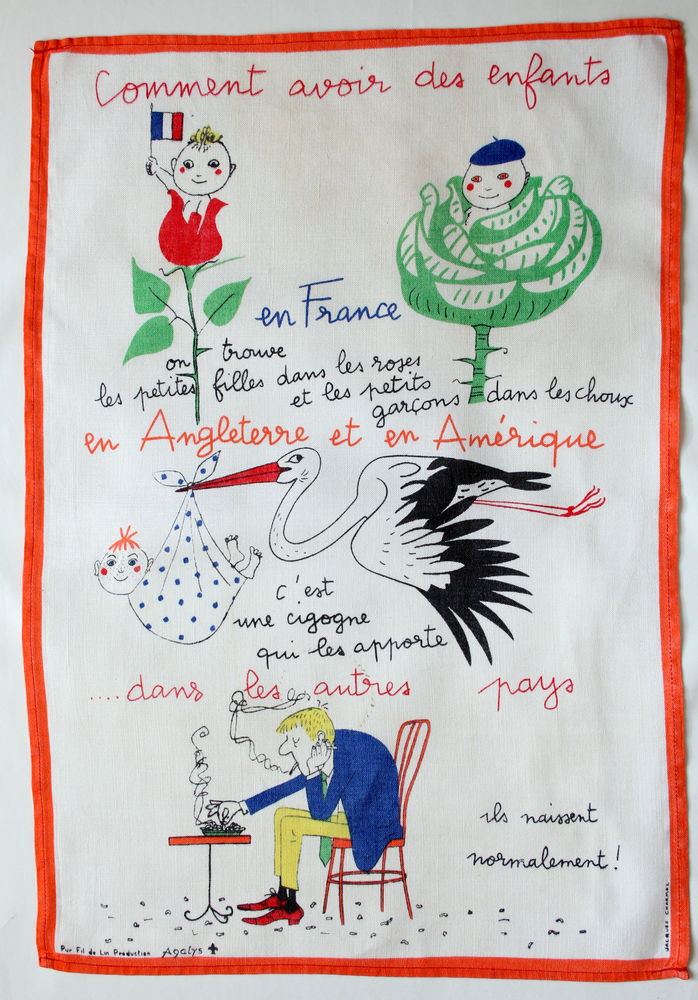 Comment avoir des enfants
en France
on trouve
les petites filles dans les roses
et les petits
garçons dans les choux
en Angleterre et en Amérique
c'est
une cigogne
qui les apporte
....dans les autres pays
ils naissent
normalement!
Pur Fil de Lin Production Agalys
JACQUES CHARMOZ